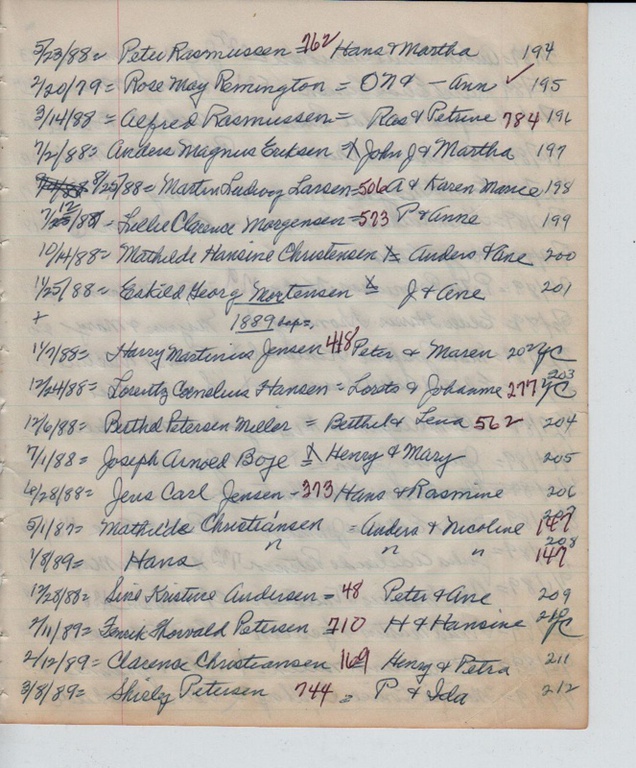 5/23/88 = Peter Rasmussen = 762 Hans & Martha 194
2/20/79 = Rose May Remington = O N & - Ann ✓ 195
3/14/88 = Alfred Rasmussen = Ras & Petrine 784 196
7/2/88 = Anders Magnus Eriksen = X John J & Martha 197
8/25/88 = Martin Ludvog Larsen = 506 A & Karen Marice 198
= Lillie Clarence Morgensen = 573 P & Anne 199
10/14/88 = Mathilde Hansine Christensen X Anders & Ane 200
11/25/88 = Eskild Georg Mortensen X J & Ane 201
+ 1889 bap =,
11/7/88 = Harry Martinius Jensen 418 Peter & Maren 202 yC
12/24/88 = Lorentz Cornelius Hansen = Loratz & Johanne 277 yC 203
12/6/88 = Berthel Petersen Miller = Berthel & Lena 562 204
7/1/88 = Joseph Arnold Boje = X Henry & Mary 205
6/28/88 = Jens Carl Jensen - 373 Hans & Rasmine 206
5/1/87 = Mathilde Christiansen = Anders & Nicoline 147 207
1/8/89 = Hans " " " 147 208
12/28/88 = Sine Kristine Andersen = 48 Peter & Ane 209
2/11/89 = Henrik Thorvald Petersen 710 H & Hansine 210 yC
2/12/89 = Clarence Christiansen 169 Henry & Petra 211
3/8/89 = Shirly Petersen 744 = P & Ida 212